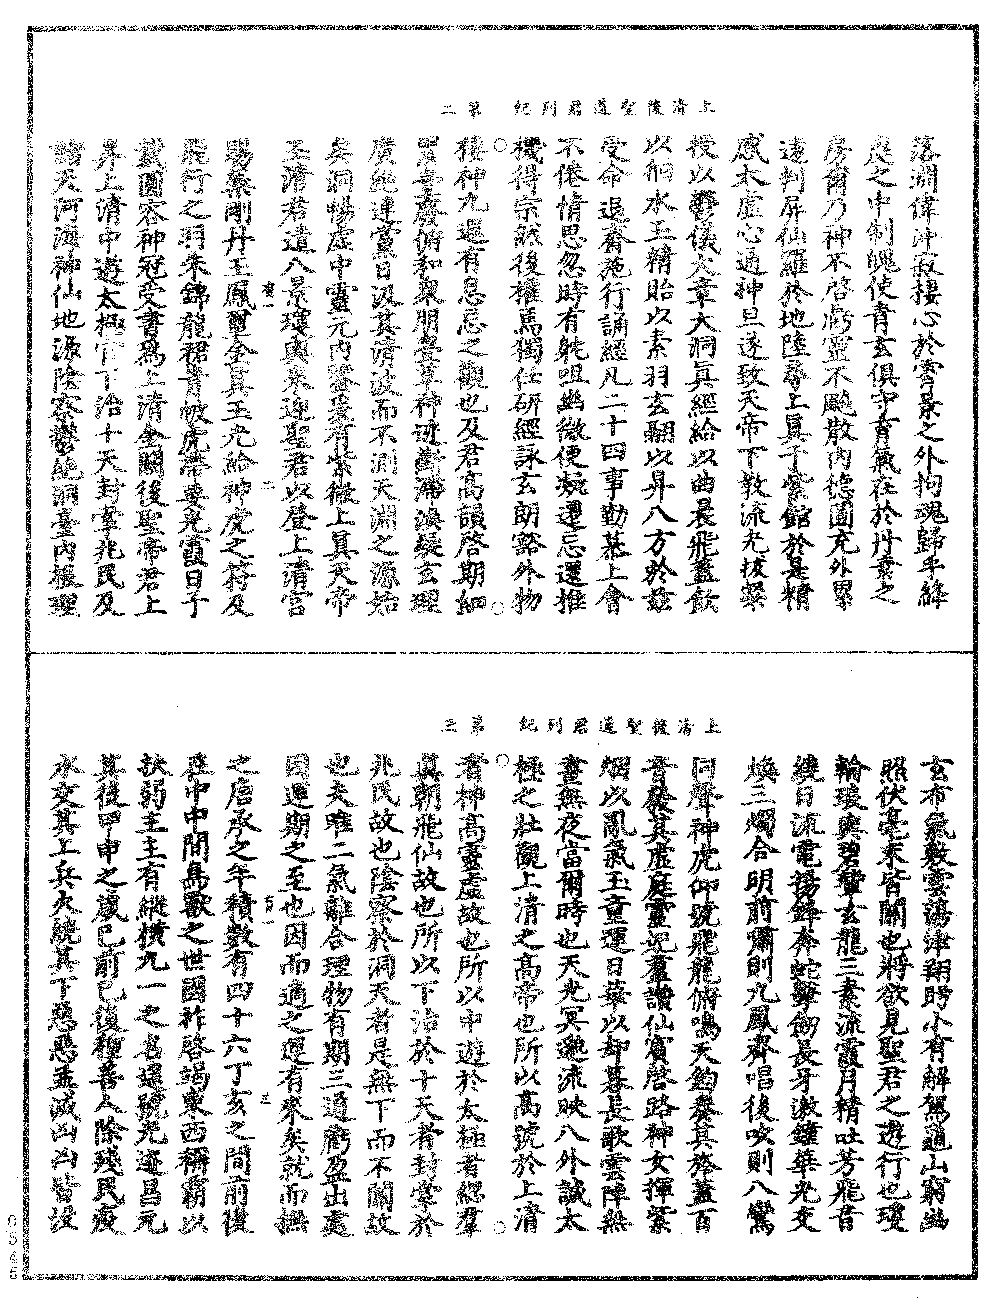 上清後聖道君列紀　第二
落淵偉沖寂捿心於霄景之外拘魂歸乎絳
庭之中制魄使青玄俱守育氣在於丹素之
房爾乃神不啓虧靈不飈散內德圓充外累
遠判屏仙羅於地陸尋上眞于紫館於是精
感太虛心通神旦遂致天帝下教流光拔粲
授以鬱儀火章大洞眞經給以曲晨飛蓋飲
以絧水玉精貽以素羽玄翮以昇八方於茲
受命退齋施行誦經凡二十四事勤慕上會
不倦情思忽時有躭咀幽微便凝還忘還推
機得宗然後權馬獨任研經詠玄朗豁外物
棲神九遐有息忌之觀也及君高韻啓期細
累喜廢俯和眾朋疊草神迹斷滯渙綬玄理
廣絶連黨日汲其濟波而不測天淵之源始
矣洞暢虛中靈元內鑒爰有紫微上眞天帝
玉清君遣八景瓊輿來迎聖君以登上清宮
賜蘂剛丹玉鳳璽金眞玉光給神虎之符及
飛行之羽朱錦龍裙青帔虎帶要光霞日手
戴圓容神冠受書爲上清金闕後聖帝君上
昇上清中遊太極宮下治十天封掌兆民及
諸天河海神仙地源陰察鬱絶洞臺內振理
上清後聖道君列紀　第三
玄布氣數雲藹津翔眄小有解駕龜山窮幽
照伏毫末皆關也將欲見聖君之遊行也瓊
輪琅輿碧輦玄龍三素流霞月精吐芳飛音
繞日流電揚鋒奔蛇擊劒長牙激鍾華光交
煥三燭合明前嘯則九鳳齊唱後吹則八鸞
同聲神虎仰號飛龍俯鳴天鈞奏其旍蓋百
音發其虛庭靈妃羣讚仙賓啓路神女揮紫
烟以亂氣玉童運日華以却暮長歌雲陣無
晝無夜當爾時也天光冥逸流映八外誠太
極之壯觀上清之高帝也所以高號於上清
者神高靈虛故也所以中遊於太極者緫羣
眞朝飛仙故也所以下治於十天者封掌於
兆民故也陰察於洞天者是無下而不關故
也夫唯二氣離合理物有期三道虧盈出處
因運期之至也因而適之運有來矣就而撫
之唐承之年積數有四十六丁亥之間前後
庭中中間鳥獸之世國祚啓竭東西稱霸以
扶弱主主有縱横九一之名還號光迹昌元
其後甲申之歲已前已後種善人除殘民疫
水交其上兵火繞其下惡惡並滅凶凶皆没
0545